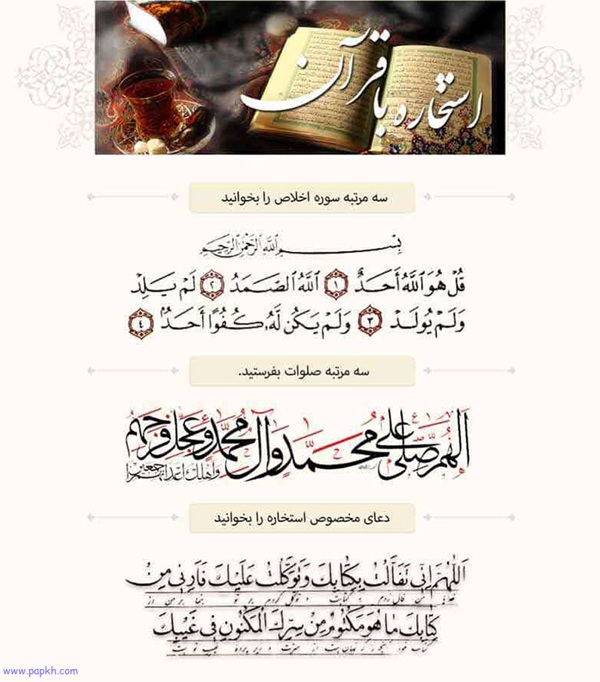 استخاره با قرآن
سه مرتبه سوره اخلاص را بخوانید
بِسْمِ اللَّهِ الرَّحْمَٰنِ الرَّحِيمِ
قُلْ هُوَ اللَّهُ أَحَدٌ ﴿١﴾ اللَّهُ الصَّمَدُ ﴿٢﴾ لَمْ يَلِدْ
وَلَمْ يُولَدْ ﴿٣﴾ وَلَمْ يَكُن لَّهُ كُفُوًا أَحَدٌ ﴿٤﴾
سه مرتبه صلوات بفرستید.
اللهم صل علی محمد وآل محمد وعجل فرجهم
واهلك اعدائهم اجمعین
دعای مخصوص استخاره را بخوانید
اَللّهُمَّ اِنّی تَفَأَّلْتُ بِکِتابِکَ وَتَوَکَّلْتُ عَلَیْکَ فَاَرِنی مِنْ
کِتابِکَ ما هُوَ مَکْتُومٌ مِنْ سِرِّکَ الْمَکْنُونِ فی غَیْبِکَ
www.papkh.com